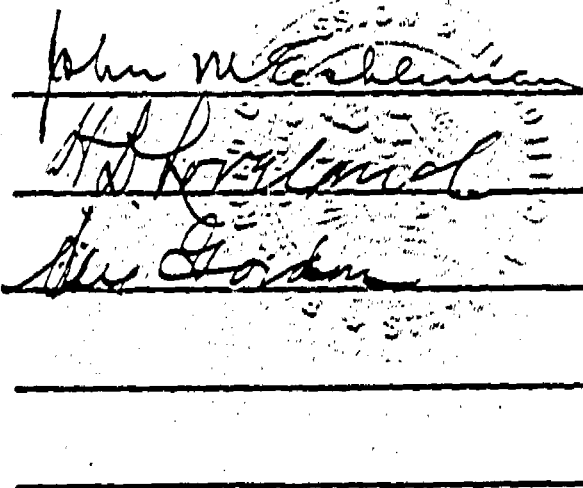 John M Eshleman
H D Loveland
Alex Gordon